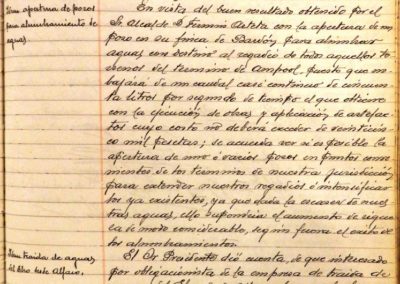 Idem apertura de pozos
para alumbramiento de
aguas.
En vista del buen resultado obtenido por el
Sr. Alcalde D. Fermín Arteta con la apertura de un
pozo en su finca de para alumbrar
aguas con destino al regadío de todos aquellos te-
rrenos del termino de puesto que
de un caudal casi continuo de cincuen-
ta litros por segundo de tiempo el que obtiene
con la ejecución de obras y aplicación de artefac-
tos cuyo costo no deberá exceder de veinticin-
co mil pesetas; se acuerda ver si es posible la
apertura de uno ó varios pozos en puntos conve-
nientes de los terminos de nuestra jurisdicción
para extender nuestros regadíos é intensificar
los ya existentes, ya que dada la escasez de nues-
tras aguas, ello supondría el aumento de rique-
za de modo considerable, según fuera el exito de
los alumbramientos.
Idem traida de aguas
del Ebro desde Alfaro.
El Sr. Presidente dió cuenta, de que interesado
por obligacionista de la empresa de traida de